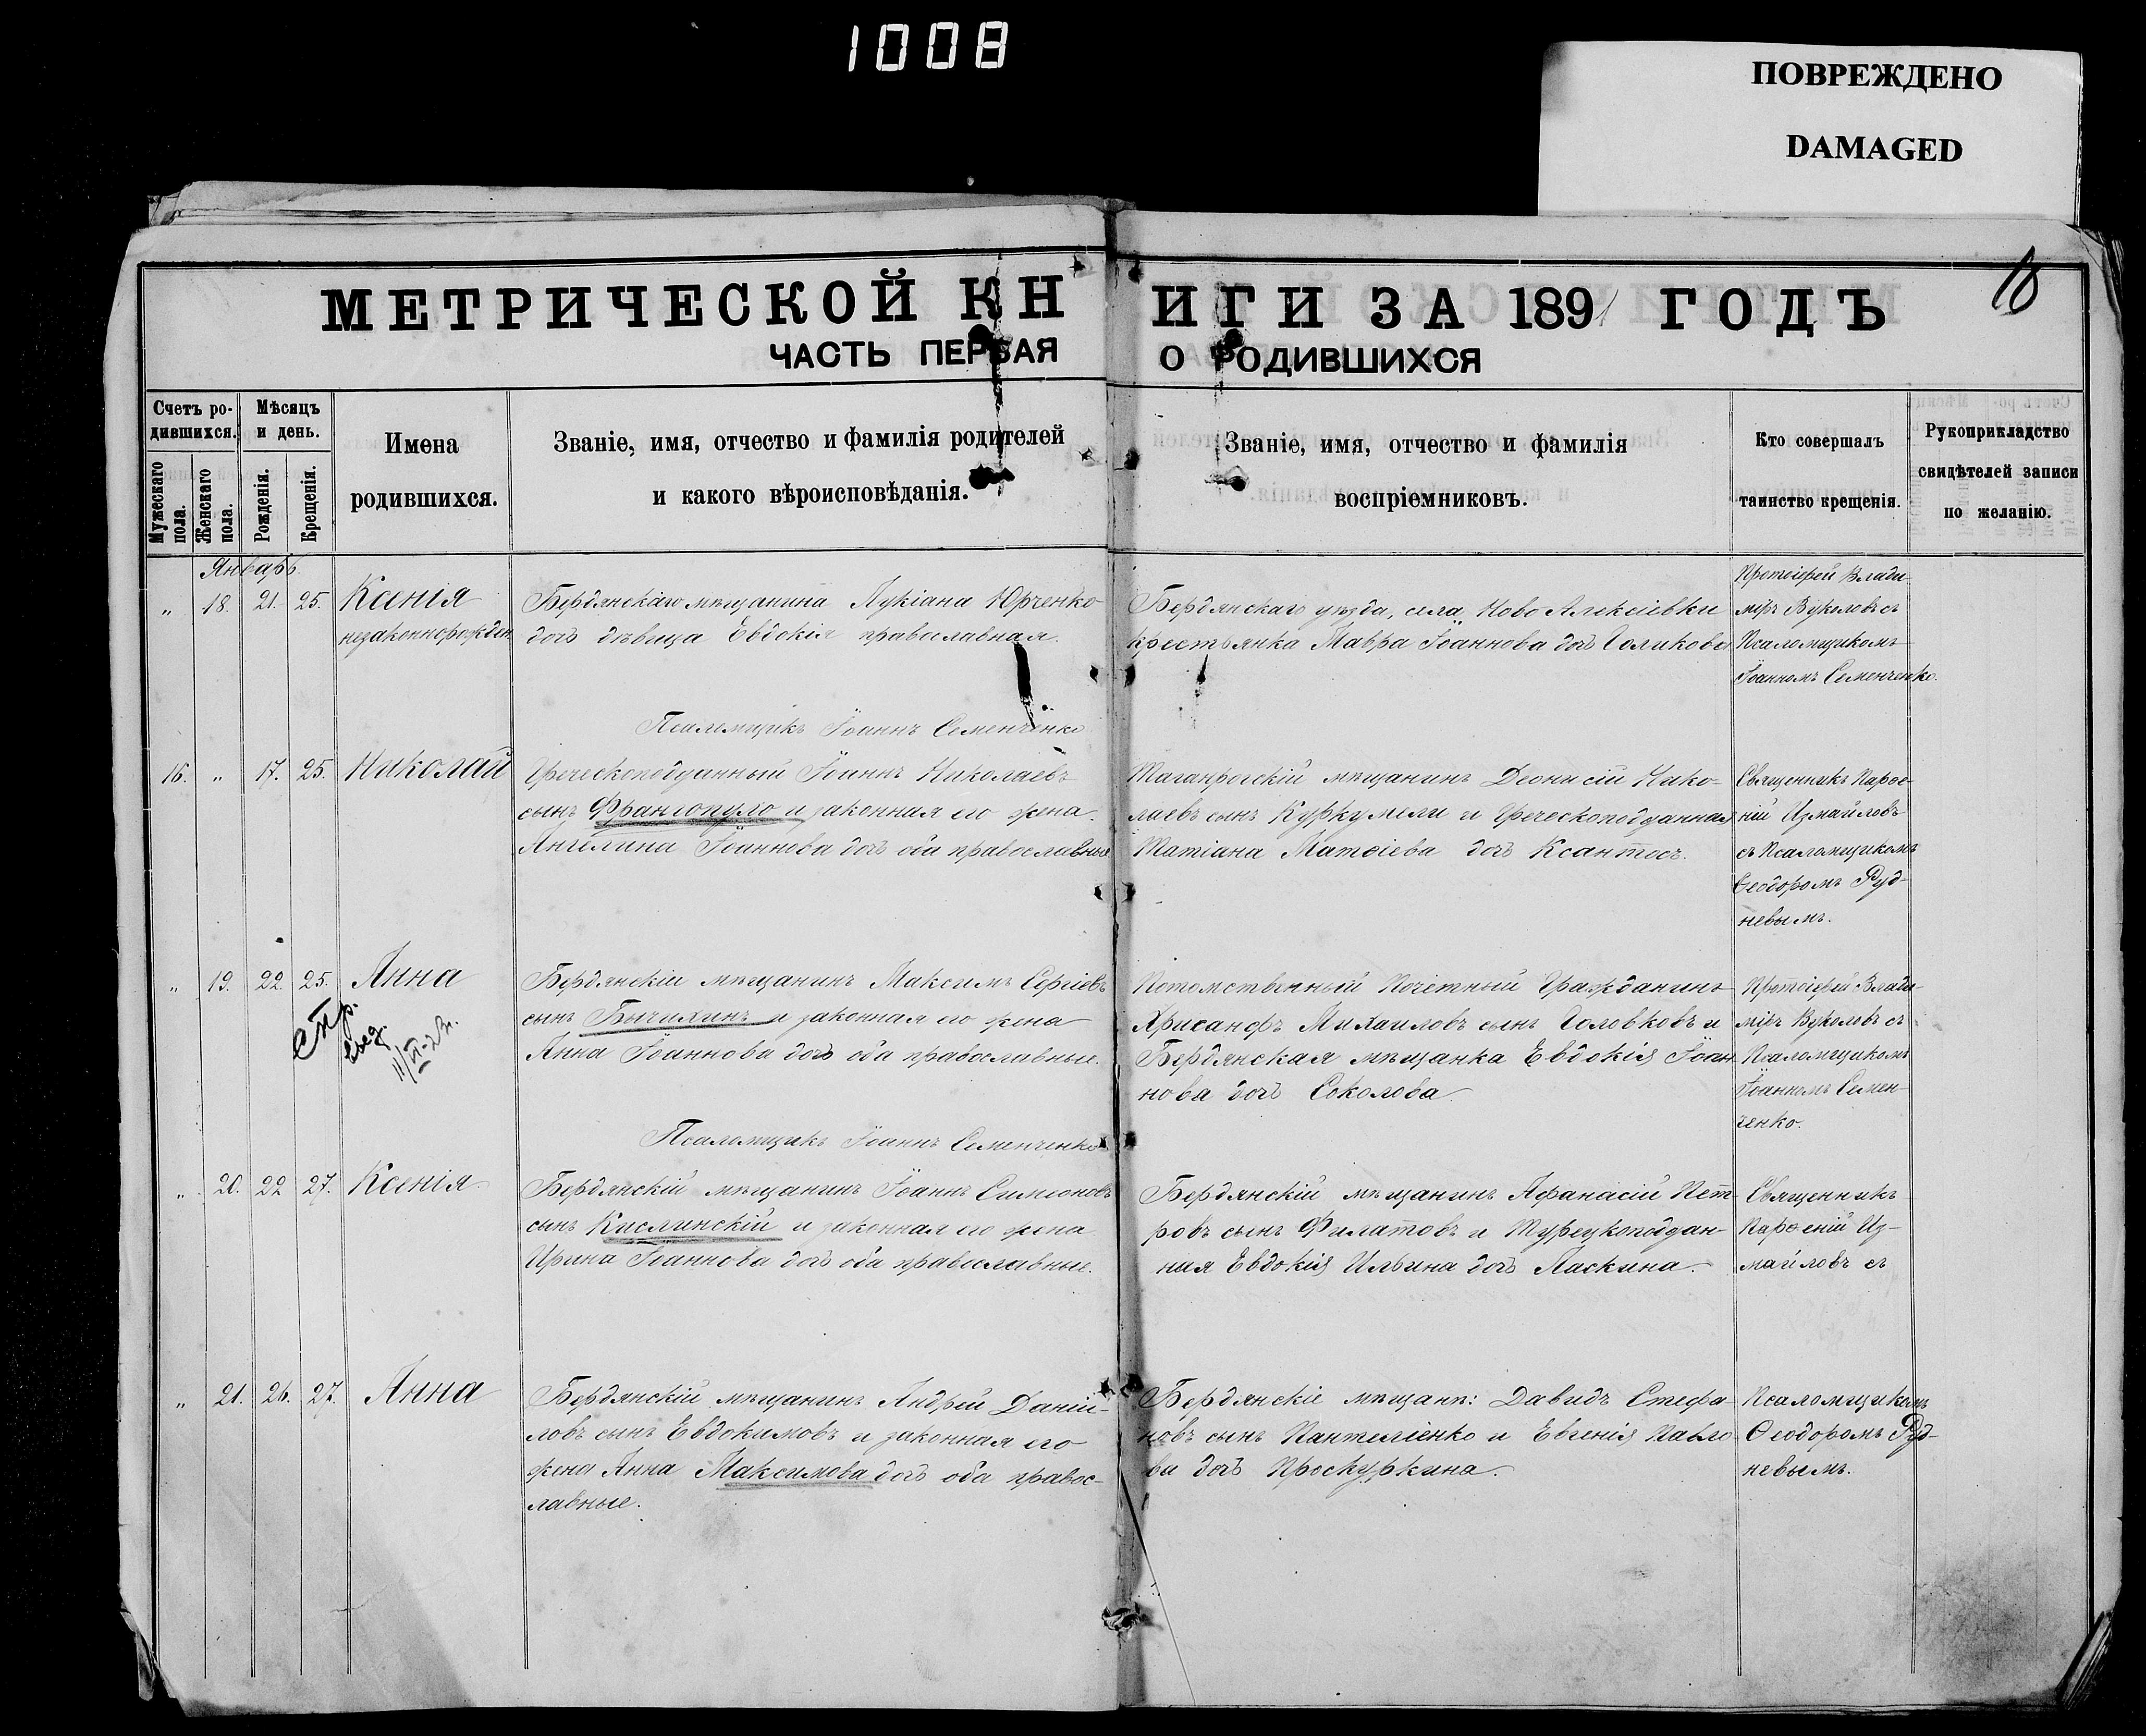 1008
ПОВРЕЖДЕНО
DAMAGED
18
МЕТРИЧЕСКОЙ КНИГИ ЗА 1891 ГОДЪ
ЧАСТЬ ПЕРВАЯ О РОДИВШИХСЯ
Счетъ ро-
дившихся.
Мужескаго
пола.
Женскаго
пола.
Мѣсяцъ
и день.
Рожденія.
Крещенія.
Имена
родившихся.
Званіе, имя, отчество и фамилія родителей
и какого вѣроисповѣданія.
Званіе, имя, отчество и фамилія
воспріемниковъ.
Кто совершалъ
таинство крещенія.
Рукоприкладство
свидѣтелей записи
по желанію.
Январь
„ 18. 21. 25. Ксенія
незаконнорожден
Бердянскаго мѣщанина Лукіана Юрченко
дочь дѣвица Евдокія православная.
Бердянскаго уѣзда, села Ново Алексіевки
крестьянка Мавра Іоаннова дочь Голикова
Протоіерей Влади-
міръ Вуколовъ съ
Псаломщикомъ
Іоанномъ Семенченко.
Псаломщикъ Іоаннъ Семенченко
16. „ 17. 25. Николай
Греческоподданный Іоаннъ Николаевъ
сынъ Франгопуло и законная его жена
Ангелина Іоаннова дочь оба православные
Таганрогскій мѣщанинъ Деонисій Нико-
лаевъ сынъ Куркумели и Греческоподданная
Татіана Матѳіева дочь Ксантосъ.
Священникъ Парѳе-
ній Измайловъ
съ Псаломщикомъ
Ѳеодоромъ Руд-
невымъ.
„ 19. 22. 25. Анна
Бердянскій мѣщанинъ Максимъ Сергіевъ
сынъ Бычихинъ и законная его жена
Анна Іоаннова дочь оба православные.
Потомственный Почетный Гражданинъ
Хрисанфъ Михаиловъ сынъ Головковъ и
Бердянская мѣщанка Евдокія Іоан-
нова дочь Соколова
Протоіерей Влади-
міръ Вуколовъ съ
Псаломщикомъ
Іоанномъ Семен-
ченко.
Псаломщикъ Іоаннъ Семенченко
„ 20. 22 27. Ксенія
Бердянскій мѣщанинъ Іоаннъ Симеоновъ
сынъ Кислинскій и законная его жена
Ирина Іоаннова дочь оба православные.
Бердянскій мѣщанинъ Афанасій Пет-
ровъ сынъ Филатовъ и Турецкоподдан-
ная Евдокія Ильина дочь Ласкина.
Священникъ
Парѳеній Из-
майловъ съ
„ 21. 26. 27. Анна
Бердянскій мѣщанинъ Андрей Даніи-
ловъ сынъ Евдокимовъ и законная его
жена Анна Максимова дочь оба правос-
лавные.
Бердянскіе мѣщане: Давидъ Стефа-
новъ сынъ Пантеліенко и Евгенія Павло
ва дочь Проскуркина.
Псаломщикомъ
Ѳеодоромъ Руд-
невымъ.